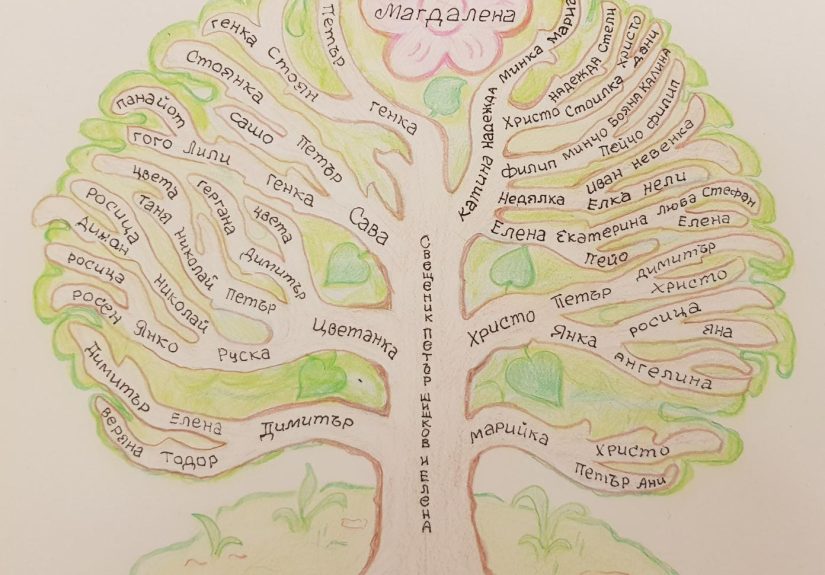 Магдалена
Генка
Стоян
Петър
Генка
Стоянка
Сашо
Петър
Генка
Сава
Панайот
Гого
Лили
Цвета
Гергана
Цвета
Димитър
Росица
Таня
Николай
Петър
Диман
Николай
Росица
Росен
Янко
Руска
Цветанка
Димитър
Елена
Димитър
Веряна
Тодор
Свещеник Петър Шишков и Елена
Катина
Надежда
Минка
Мария
Надежда
Стели
Христо
Стоилка
Христо
Дани
Филип
Минчо
Бояна
Калина
Пейчо
Филип
Недялка
Иван
Невенка
Елка
Нели
Елена
Екатерина
Люба
Стефан
Елена
Пейо
Христо
Петър
Димитър
Христо
Янка
Росица
Яна
Ангелина
Марийка
Христо
Петър
Ани